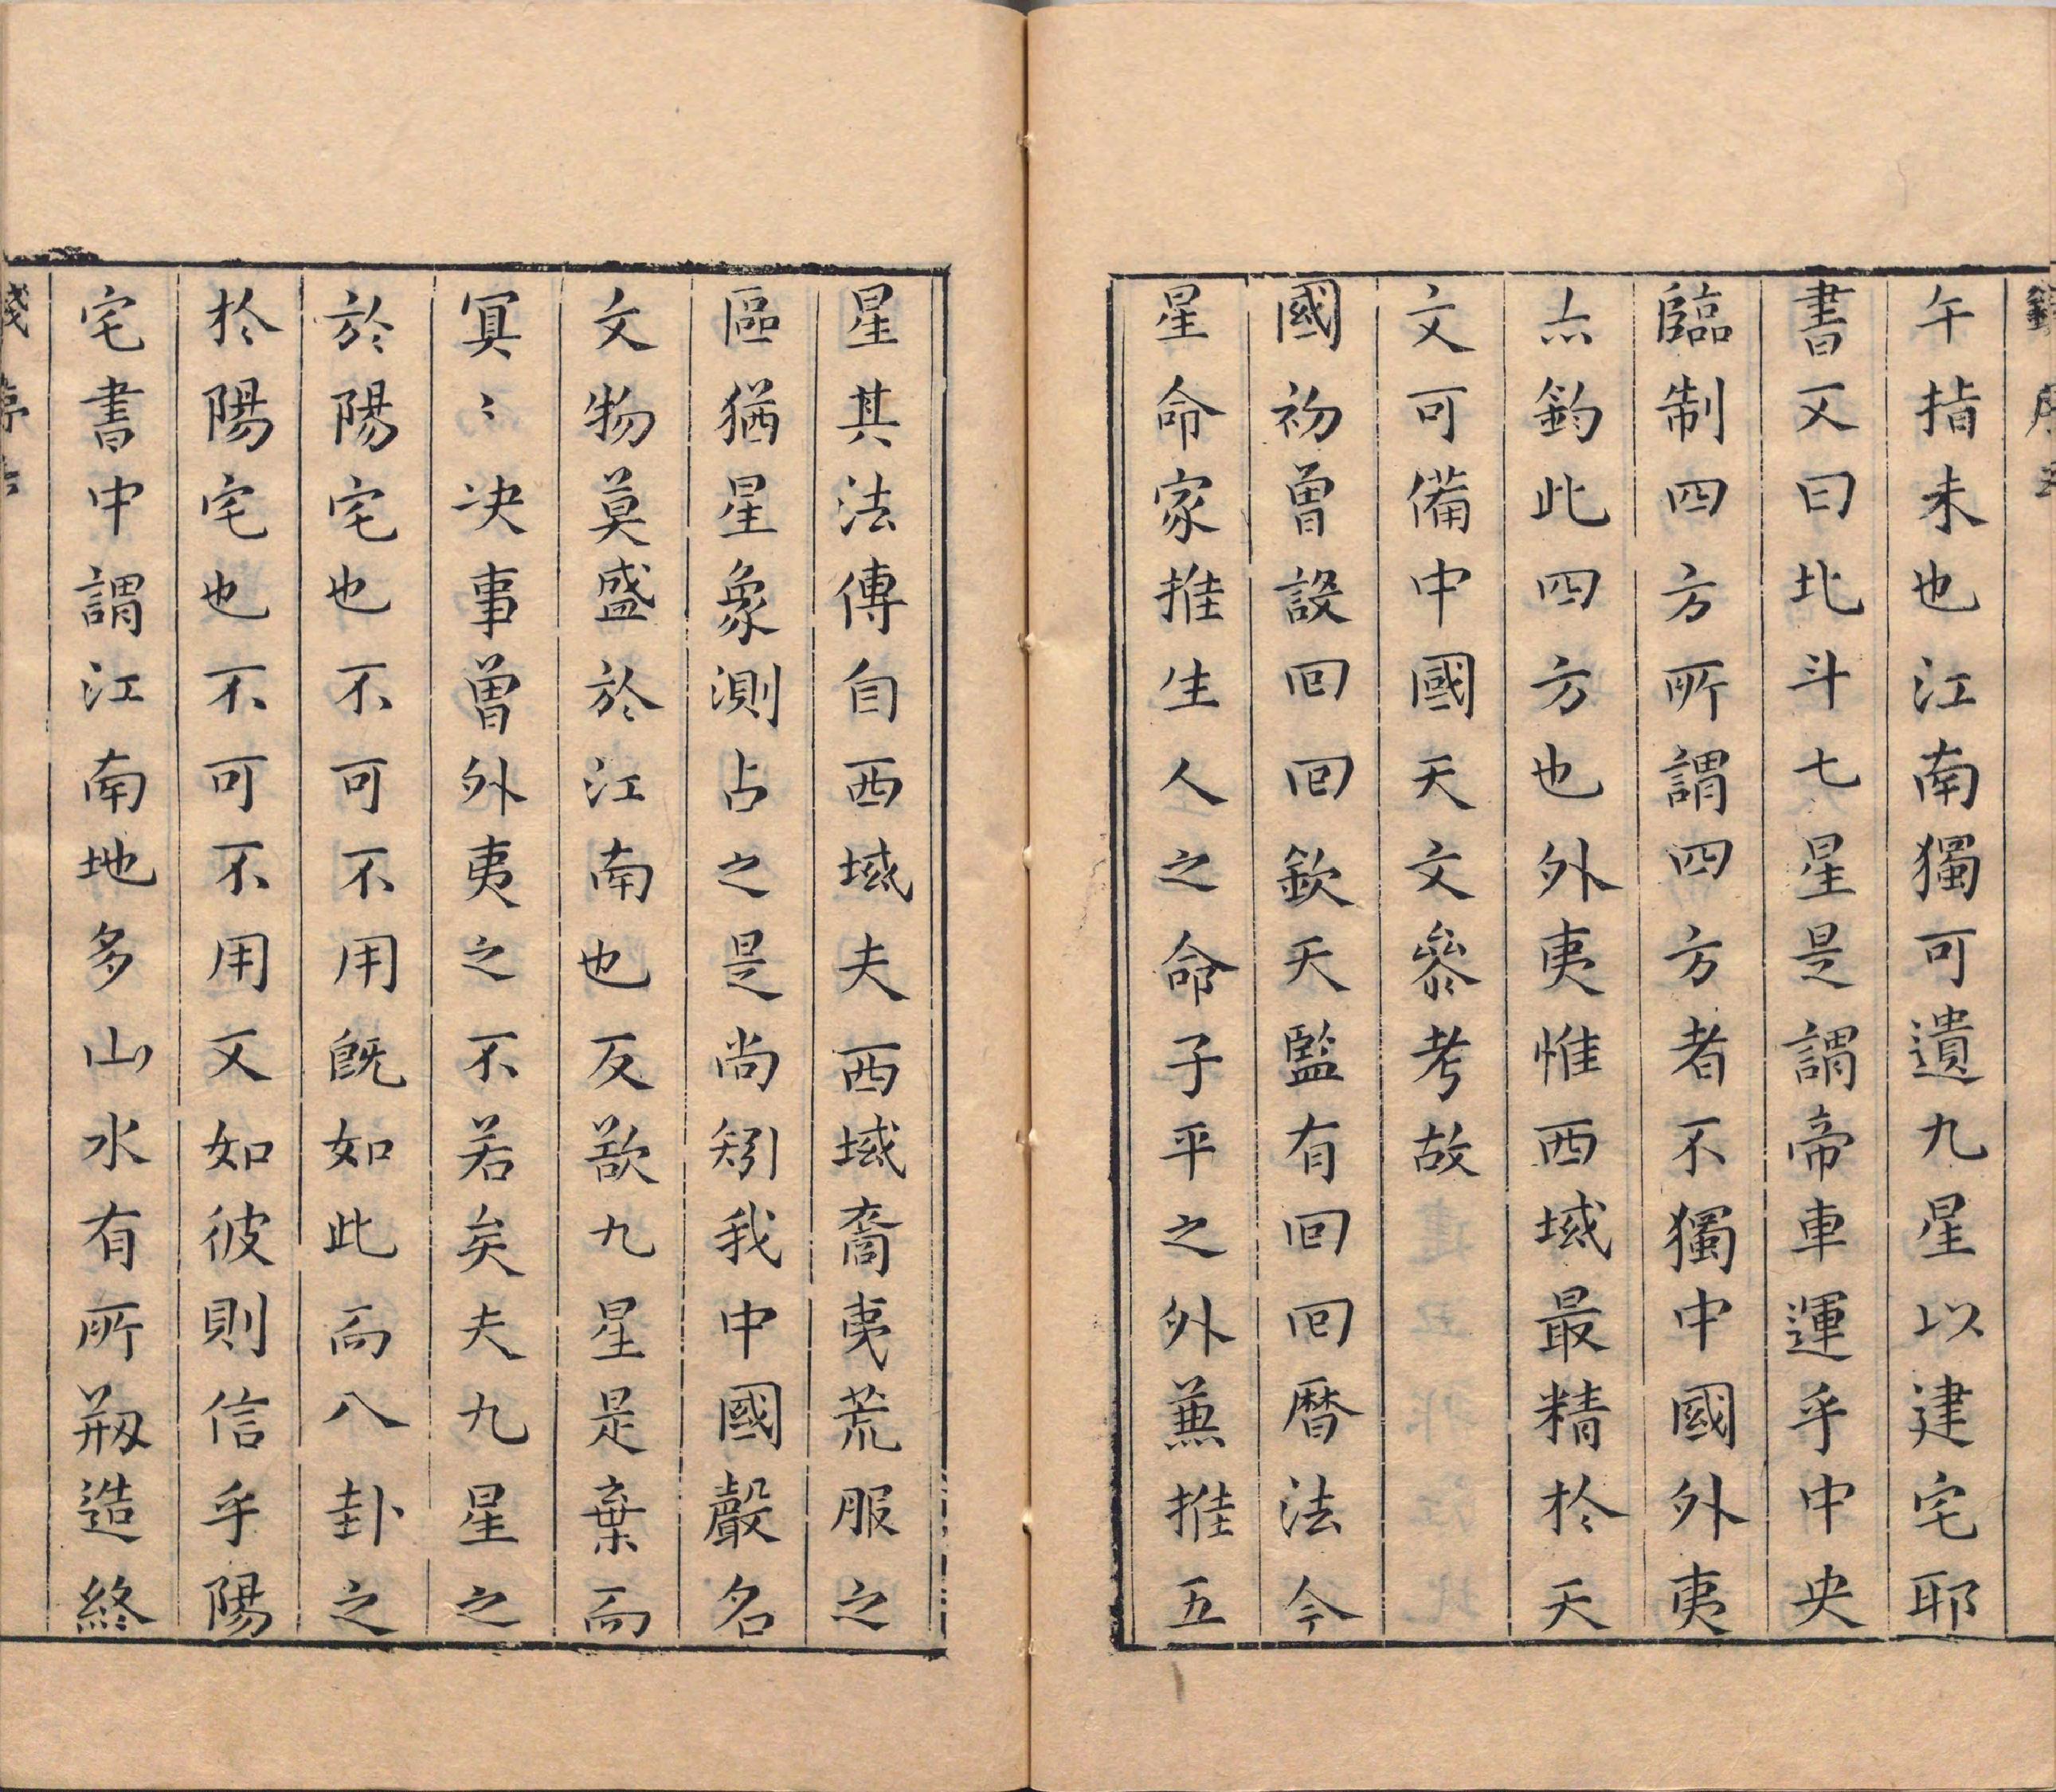 午指未也江南獨可遺九星以建宅耶
書又曰北斗七星是謂帝車運乎中央
臨制四方所謂四方者不獨中國外夷
亦鈞此四方也外夷惟西域最精於天
文可備中國天文叅考故
國初曾設回回欽天監有回回曆法今
星命家推生人之命子平之外兼推五
星其法傳自西域夫西域裔夷荒服之
區猶星象測占之是尚矧我中國聲名
文物莫盛於江南也反歉九星是棄而
冥〻决事曾外夷之不若矣夫九星之
於陽宅也不可不用旣如此而八卦之
扵陽宅也不可不用又如彼則信乎陽
宅書中謂江南地多山水有所剏造終